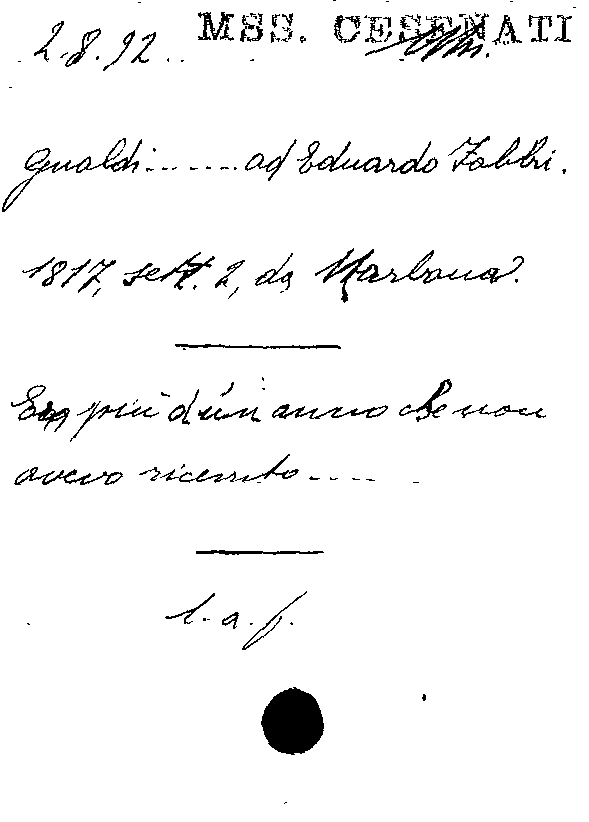 2.8.92. MSS. CESENATI
Gualdi........ad Eduardo Fabbri.
1817, sett. 2, da Narbona.
Era più d'un anno che non
avevo ricevuto.....
l. a. f.